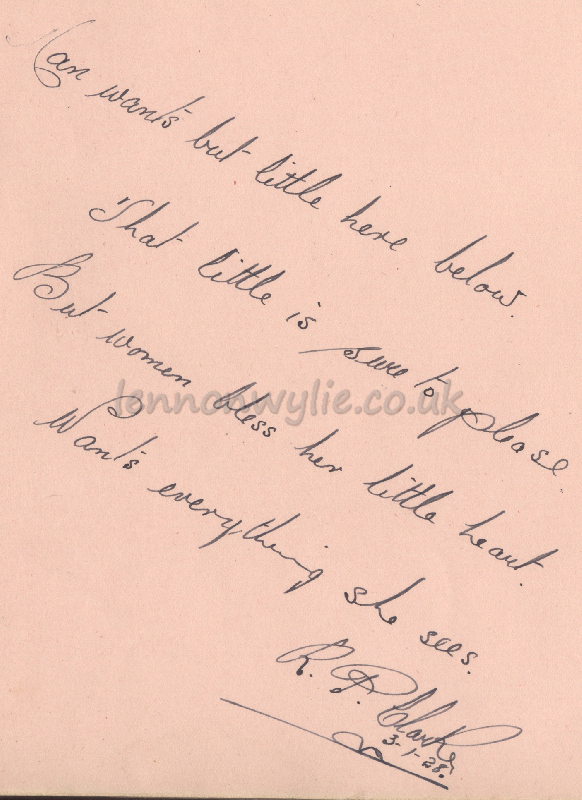 Man wants but little here below.
That little is sure to please.
But women bless her little heart.
Wants everything she sees.
R. P. Clarke
3-1-28.
lennonwylie.co.uk